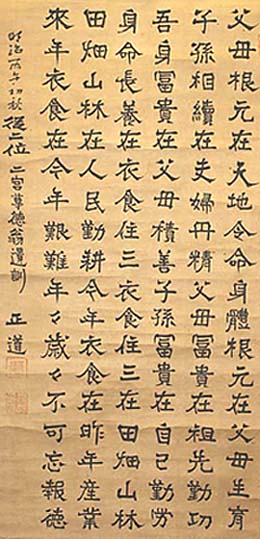 父母根元在天地令命身體根元在父母生育
子孫相續在夫婦丹精父母冨貴在祖先勤功
吾身冨貴在父母積善子孫冨貴在自己勤労
身命長養在衣食住三衣食住三在田畑山林
田畑山林在人民勤耕今年衣食在昨年産業
來年衣食在今年艱難年々歳々不可忘報德
明治丙午初秋 從二位 二宮尊德翁遺訓 正道